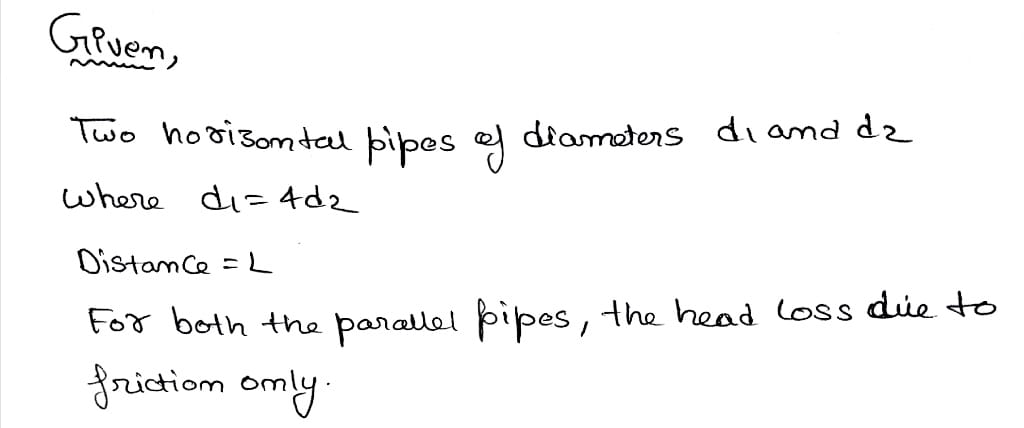 Given,
Two horizontal pipes of diameters d1 and d2
where d1 = 4d2
Distance = L
For both the parallel pipes, the head loss due to
friction only.